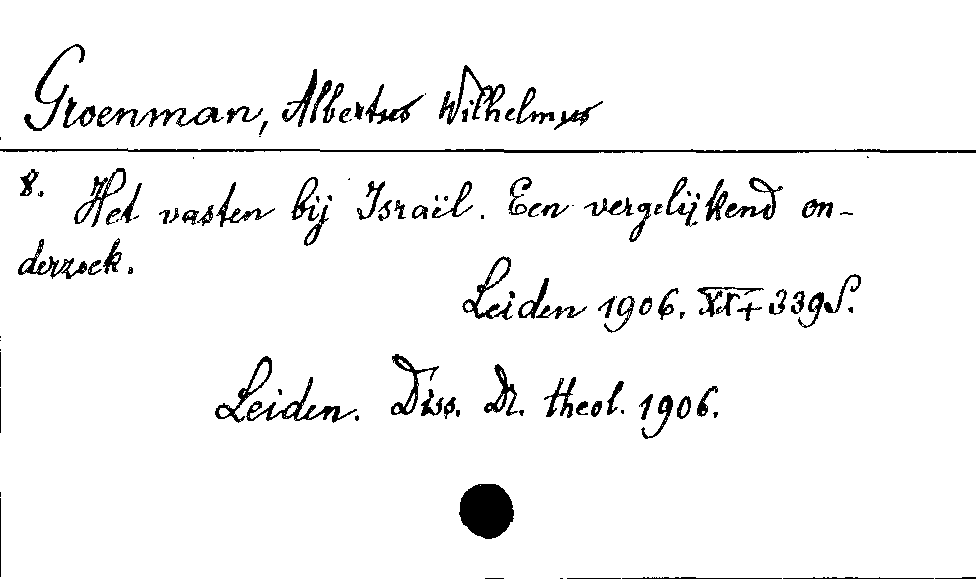 Groenman, Albertus Wilhelmus
8. Het vasten bij Israël. Een vergelijkend on-
derzoek.
Leiden 1906. XX+339S.
Leiden. Diss. Dr. theol. 1906.